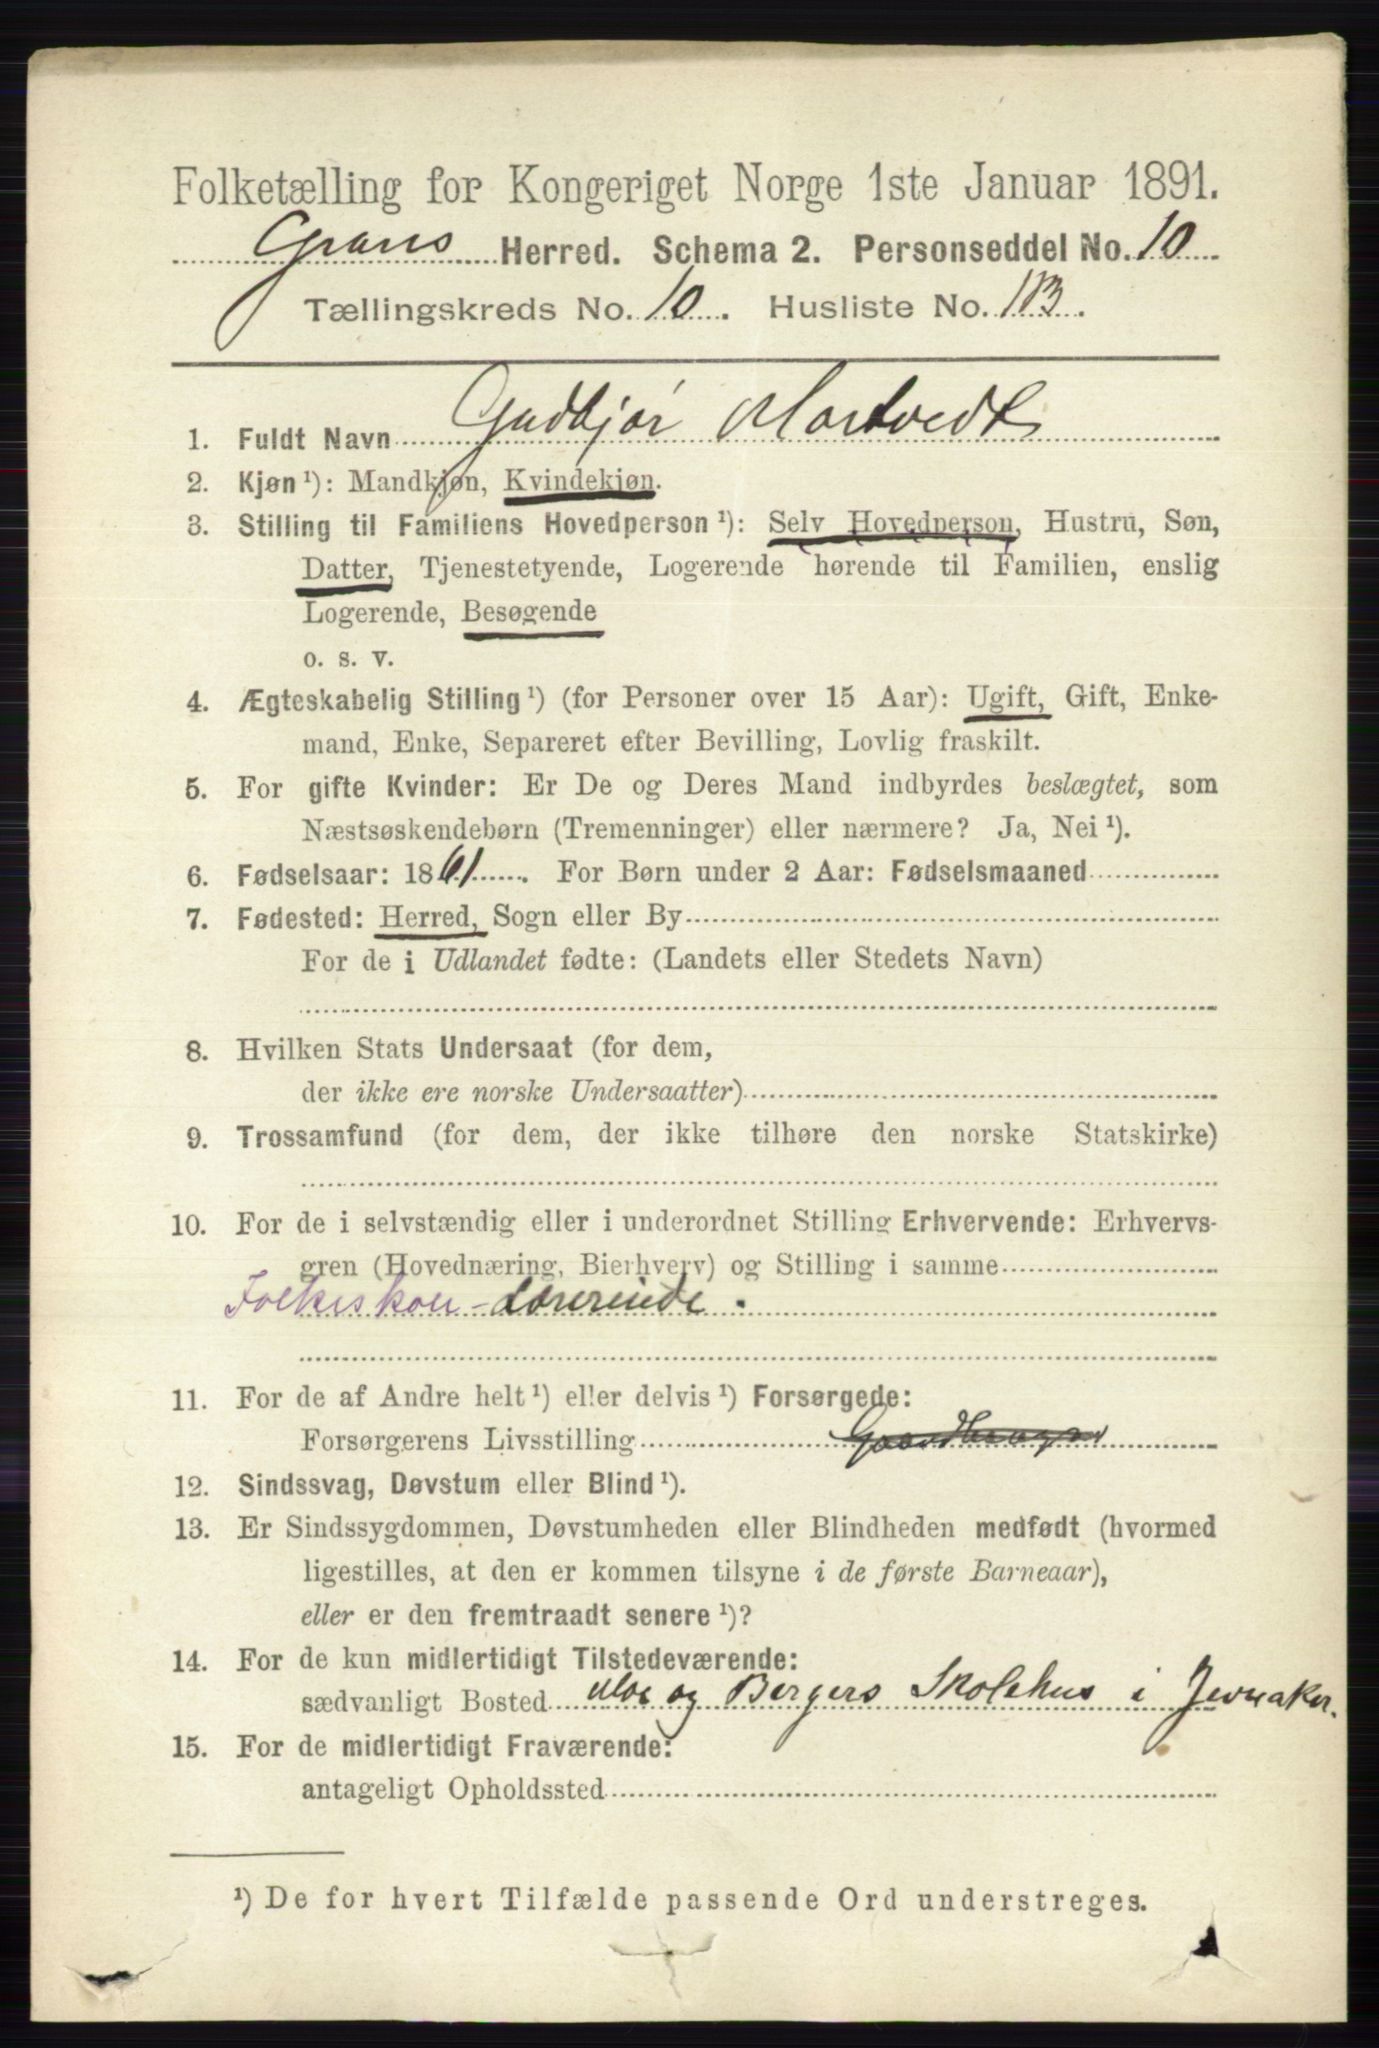 Folketælling for Kongeriget Norge 1ste Januar 1891.
Grans Herred. Schema 2. Personseddel No. 10
Tællingskreds No. 10. Husliste No. 113.
1. Fuldt Navn Gudbjør Mortvedt
2. Kjøn ¹): Mandkjøn, Kvindekjøn.
3. Stilling til Familiens Hovedperson ¹): Selv Hovedperson, Hustru, Søn,
Datter, Tjenestetyende, Logerende hørende til Familien, enslig
Logerende, Besøgende
o. s. v.
4. Ægteskabelig Stilling ¹) (for Personer over 15 Aar): Ugift, Gift, Enke-
mand, Enke, Separeret efter Bevilling, Lovlig fraskilt.
5. For gifte Kvinder: Er De og Deres Mand indbyrdes beslægtet, som
Næstsøskendebørn (Tremenninger) eller nærmere? Ja, Nei ¹).
6. Fødselsaar: 1861. For Børn under 2 Aar: Fødselsmaaned
7. Fødested: Herred, Sogn eller By
For de i Udlandet fødte: (Landets eller Stedets Navn)
8. Hvilken Stats Undersaat (for dem,
der ikke ere norske Undersaatter)
9. Trossamfund (for dem, der ikke tilhøre den norske Statskirke)
10. For de i selvstændig eller i underordnet Stilling Erhvervende: Erhvervs-
gren (Hovednæring, Bierhverv) og Stilling i samme
Folkeskole-Lærerinde.
11. For de af Andre helt ¹) eller delvis ¹) Forsørgede:
Forsørgerens Livsstilling Gaardbruger
12. Sindssvag, Døvstum eller Blind ¹).
13. Er Sindssygdommen, Døvstumheden eller Blindheden medfødt (hvormed
ligestilles, at den er kommen tilsyne i de første Barneaar),
eller er den fremtraadt senere ¹)?
14. For de kun midlertidigt Tilstedeværende:
sædvanligt Bosted Moe og Bergers Skolehus i Jevnaker.
15. For de midlertidigt Fraværende:
antageligt Opholdssted
¹) De for hvert Tilfælde passende Ord understreges.